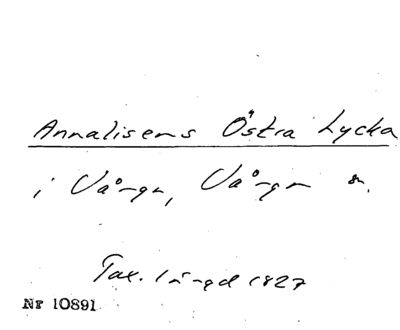 Annalisens Östra Lycka
i Vånga, Vånga sn.
Tax. längd 1827
Nr 10891